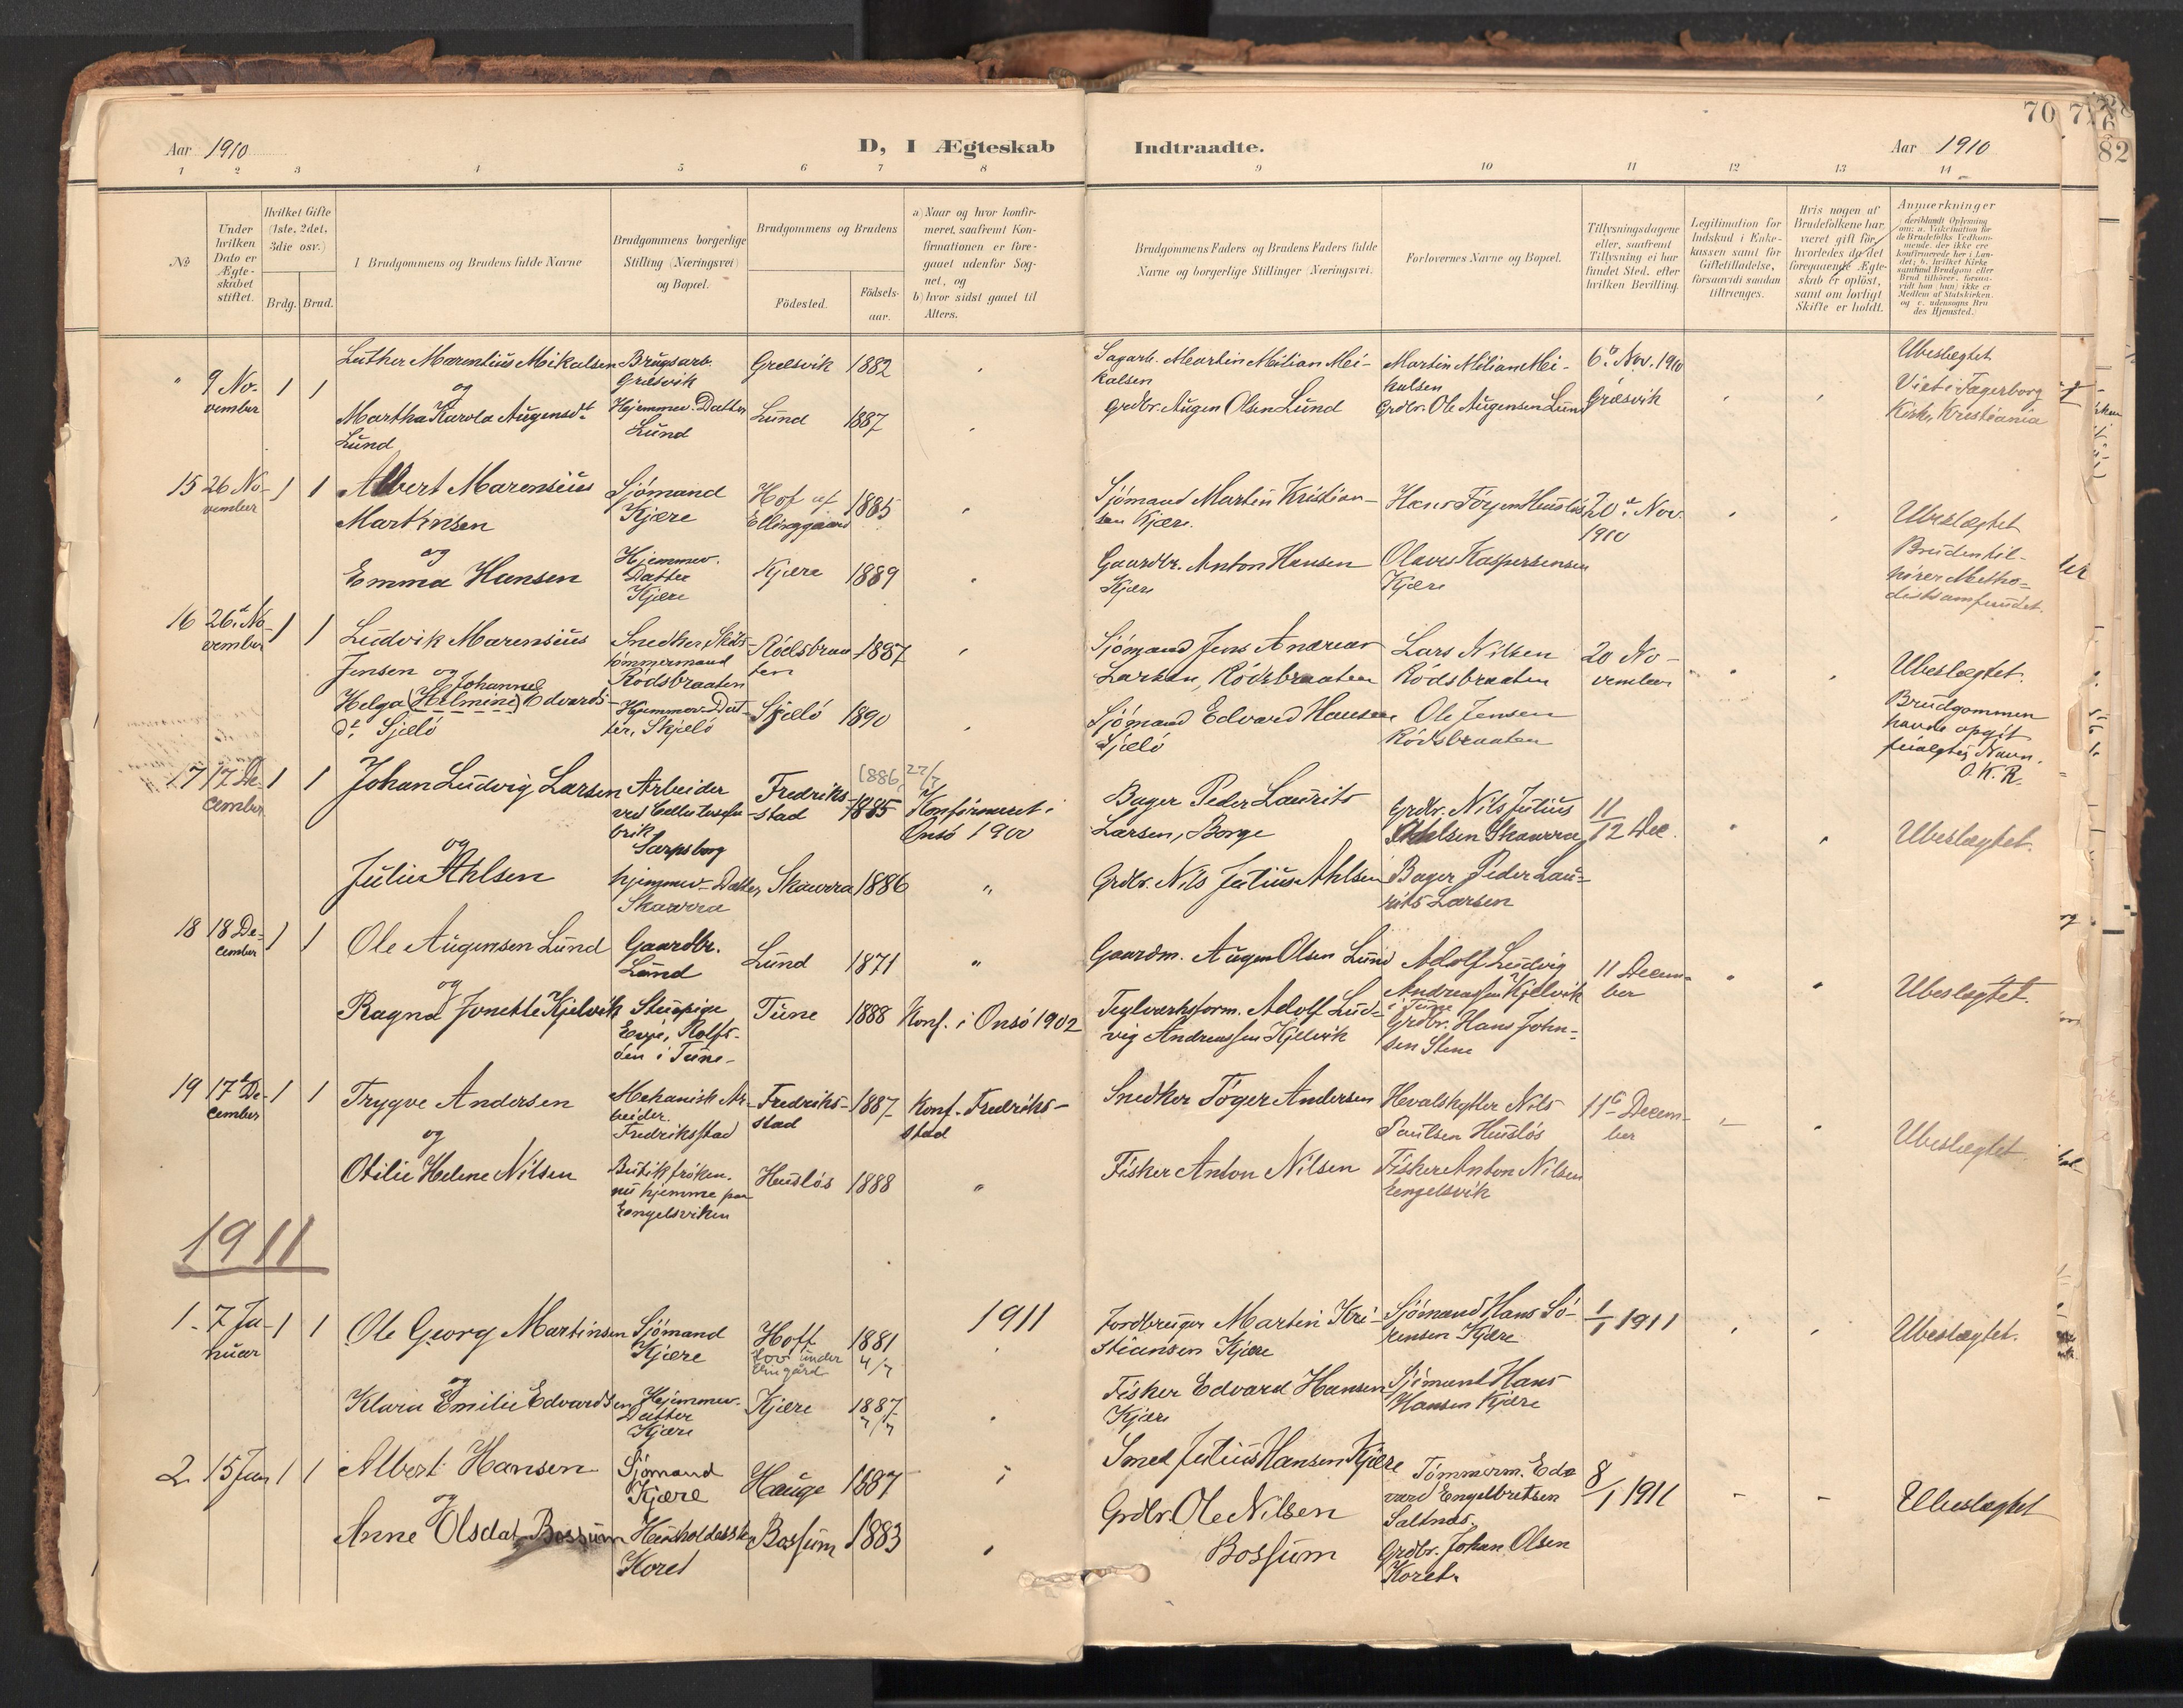 Aar 1910
D, I Ægteskab
Indtraadte.
Aar 1910
70
82
1 2 3 4 5 6 7 8 9 10 11 12 13 14
No
Under hvilken Dato er Ægte-skabet stiftet.
Hvilket Gifte (1ste, 2det, 3die osv.)
Brdg. Brud.
Brudgommens og Brudens fulde Navne
Brudgommens borgerlige Stilling (Næringsvei) og Bopæl.
Brudgommens og Brudens
Födested.
Födsels-aar.
a) Naar og hvor konfir-meret, saafremt Kon-firmationen er fore-gaaet udenfor Sog-net, og
b) hvor sidst gaaet til Alters.
Brudgommens Faders og Brudens Faders fulde Navne og borgerlige Stillinger (Næringsvei).
Forlovernes Navne og Bopæl.
Tillysningsdagene eller, saafremt Tillysning ei har fundet Sted, efter hvilken Bevilling.
Legitimation for Indskud i Enke-kassen samt for Giftetilladelse, forsaavidt saadan tiltrænges.
Hvis nogen af Brudefolkene har været gift før, hvorledes da det foregaaende Ægte-skab er oplöst, samt om lovligt Skifte er holdt.
Anmærkninger
(deriblandt Oplysning om: a. Vakcination for de Brudefolks Vedkom-mende, der ikke ere konfirmerede her i Lan-det; b. hvilket Kirke-samfund Brudgom eller Brud tilhörer, forsaa-vidt han (hun) ikke er Medlem af Statskirken, og c. udensogns Bru-des Hjemsted.)
" 9 No-vember 1 1
Luther Marentius Mikalsen
og
Martha Karola Augensdt. Lund
Brugsarb. Græsvik
Hjemmev. Datter Lund
Græsvik 1882
Lund 1887
Sagarb. Martin Milian Mi-kalsen
Grdbr. Augen Olsen Lund
Martin Milian Mi-kalsen
Grdbr. Ole Augensen Lund
6te Nov. 1910
Græsvik
Ubeslægtet
Viet i Fagerborg Kirke, Kristiania
15 26 No-vember 1 1
Albert Marensius Martinsen
og
Emma Hansen
Sjömand Kjære
Hjemmev. Datter Kjære
Hof uf Ellinggaard 1885
Kjære 1889
Sjömand Martin Kristian-sen Kjære.
Gaardbr. Anton Hansen Kjære
Hans Jörgen Huslös
Olaves Kaspersensen Kjære
20de Nov. 1910
Ubeslægtet
Bruden til-hörer Metho-distsamfundet.
16 26de No-vember 1 1
Ludvik Marensius Jensen og
Helga (Helmine) Johanne Edvards-dt. Sjælö
Snedker, Skibs-tömmermand Rödsbraaten
Hjemmev. Dat-ter, Skjelö
Rödsbraa-ten 1887
Sjælö 1890
Sjömand Jens Andreas Larsen, Rödsbraaten
Sjömand Edvard Hansen Sjælö
Lars Nilsen Rödsbraaten
Ole Jensen Rödsbraaten
20 No-vember
Ubeslægtet.
Brudgommen havde opgit feilagtig Navn.
O.K.R.
17 17 De-cember 1 1
Johan Ludvig Larsen
og
Julie Ahlsen
Arbeider ved Cellulosefa-brik Sarpsborg
hjemmev. Datter, Skaarra
Fredriks-stad 1885
1886, 27/7
Konfirmeret i Onsö 1900
Skaarra 1886 "
Bager Peder Laurits Larsen, Borge
Grdbr. Nils Julius Ahlsen
Grdbr. Nils Julius Ahlsen Skaarra
Bager Peder Lau-rits Larsen
11/12 Dec.
Ubeslægtet.
18 18 De-cember 1 1
Ole Augensen Lund
og
Ragna Jonette Kjelvik
Gaardbr. Lund
Stuepige
Evje, Rolfs-öen i Tune
Lund 1871 "
Tune 1888
Konf. i Onsö 1902
Gaardm. Augen Olsen Lund
Teglværksform. Adolf Lud-vig Andreassen Kjelvik
Adolf Ludvig Andreassen Kjelvik i Tune
Grdbr. Hans John-sen Stene
11 Decem-ber
Ubeslægtet.
19 17de De-cember 1 1
Trygve Andersen
og
Otilie Helene Nilsen
Mekanisk Ar-beider Fredriksstad
Butikfröken, nu hjemme paa Engelsviken
Fredriks-stad 1887
Konf. Fredriks-stad
Huslös 1888 "
Snedker Töger Andersen
Fisker Anton Nilsen
Hvalskytter Nils Paulsen Huslös
Fisker Anton Nilsen Engelsvik
11te Decem-ber
Ubeslægtet
1911
1911
1. 7 Ja-nuar 1 1
Ole Georg Martinsen
og
Klara Emilie Edvardsen
Sjömand Kjære
Hjemmev. Datter Kjære
Hoff 1881
Hov under Elingård 4/7
Kjære 1887
7/7
Jordbruger Martin Kri-stiansen Kjære
Fisker Edvard Hansen Kjære
Sjömand Hans Sö-rensen Kjære
Sjömand Hans Hansen Kjære
1/1 1911
Ubeslægtet.
2 15 Jan 1 1
Albert Hansen
og
Anne Olsdat. Bossum
Sjömand Kjære
Husholderske Koret
Hauge 1887
Bossum 1883
Smed Julius Hansen Kjære
Grdbr. Ole Nilsen Bossum
Tömmerm. Ed-vard Engelbretsen Saltnes.
Grdbr. Johan Olsen Koret.
8/1 1911
Ubeslægtet